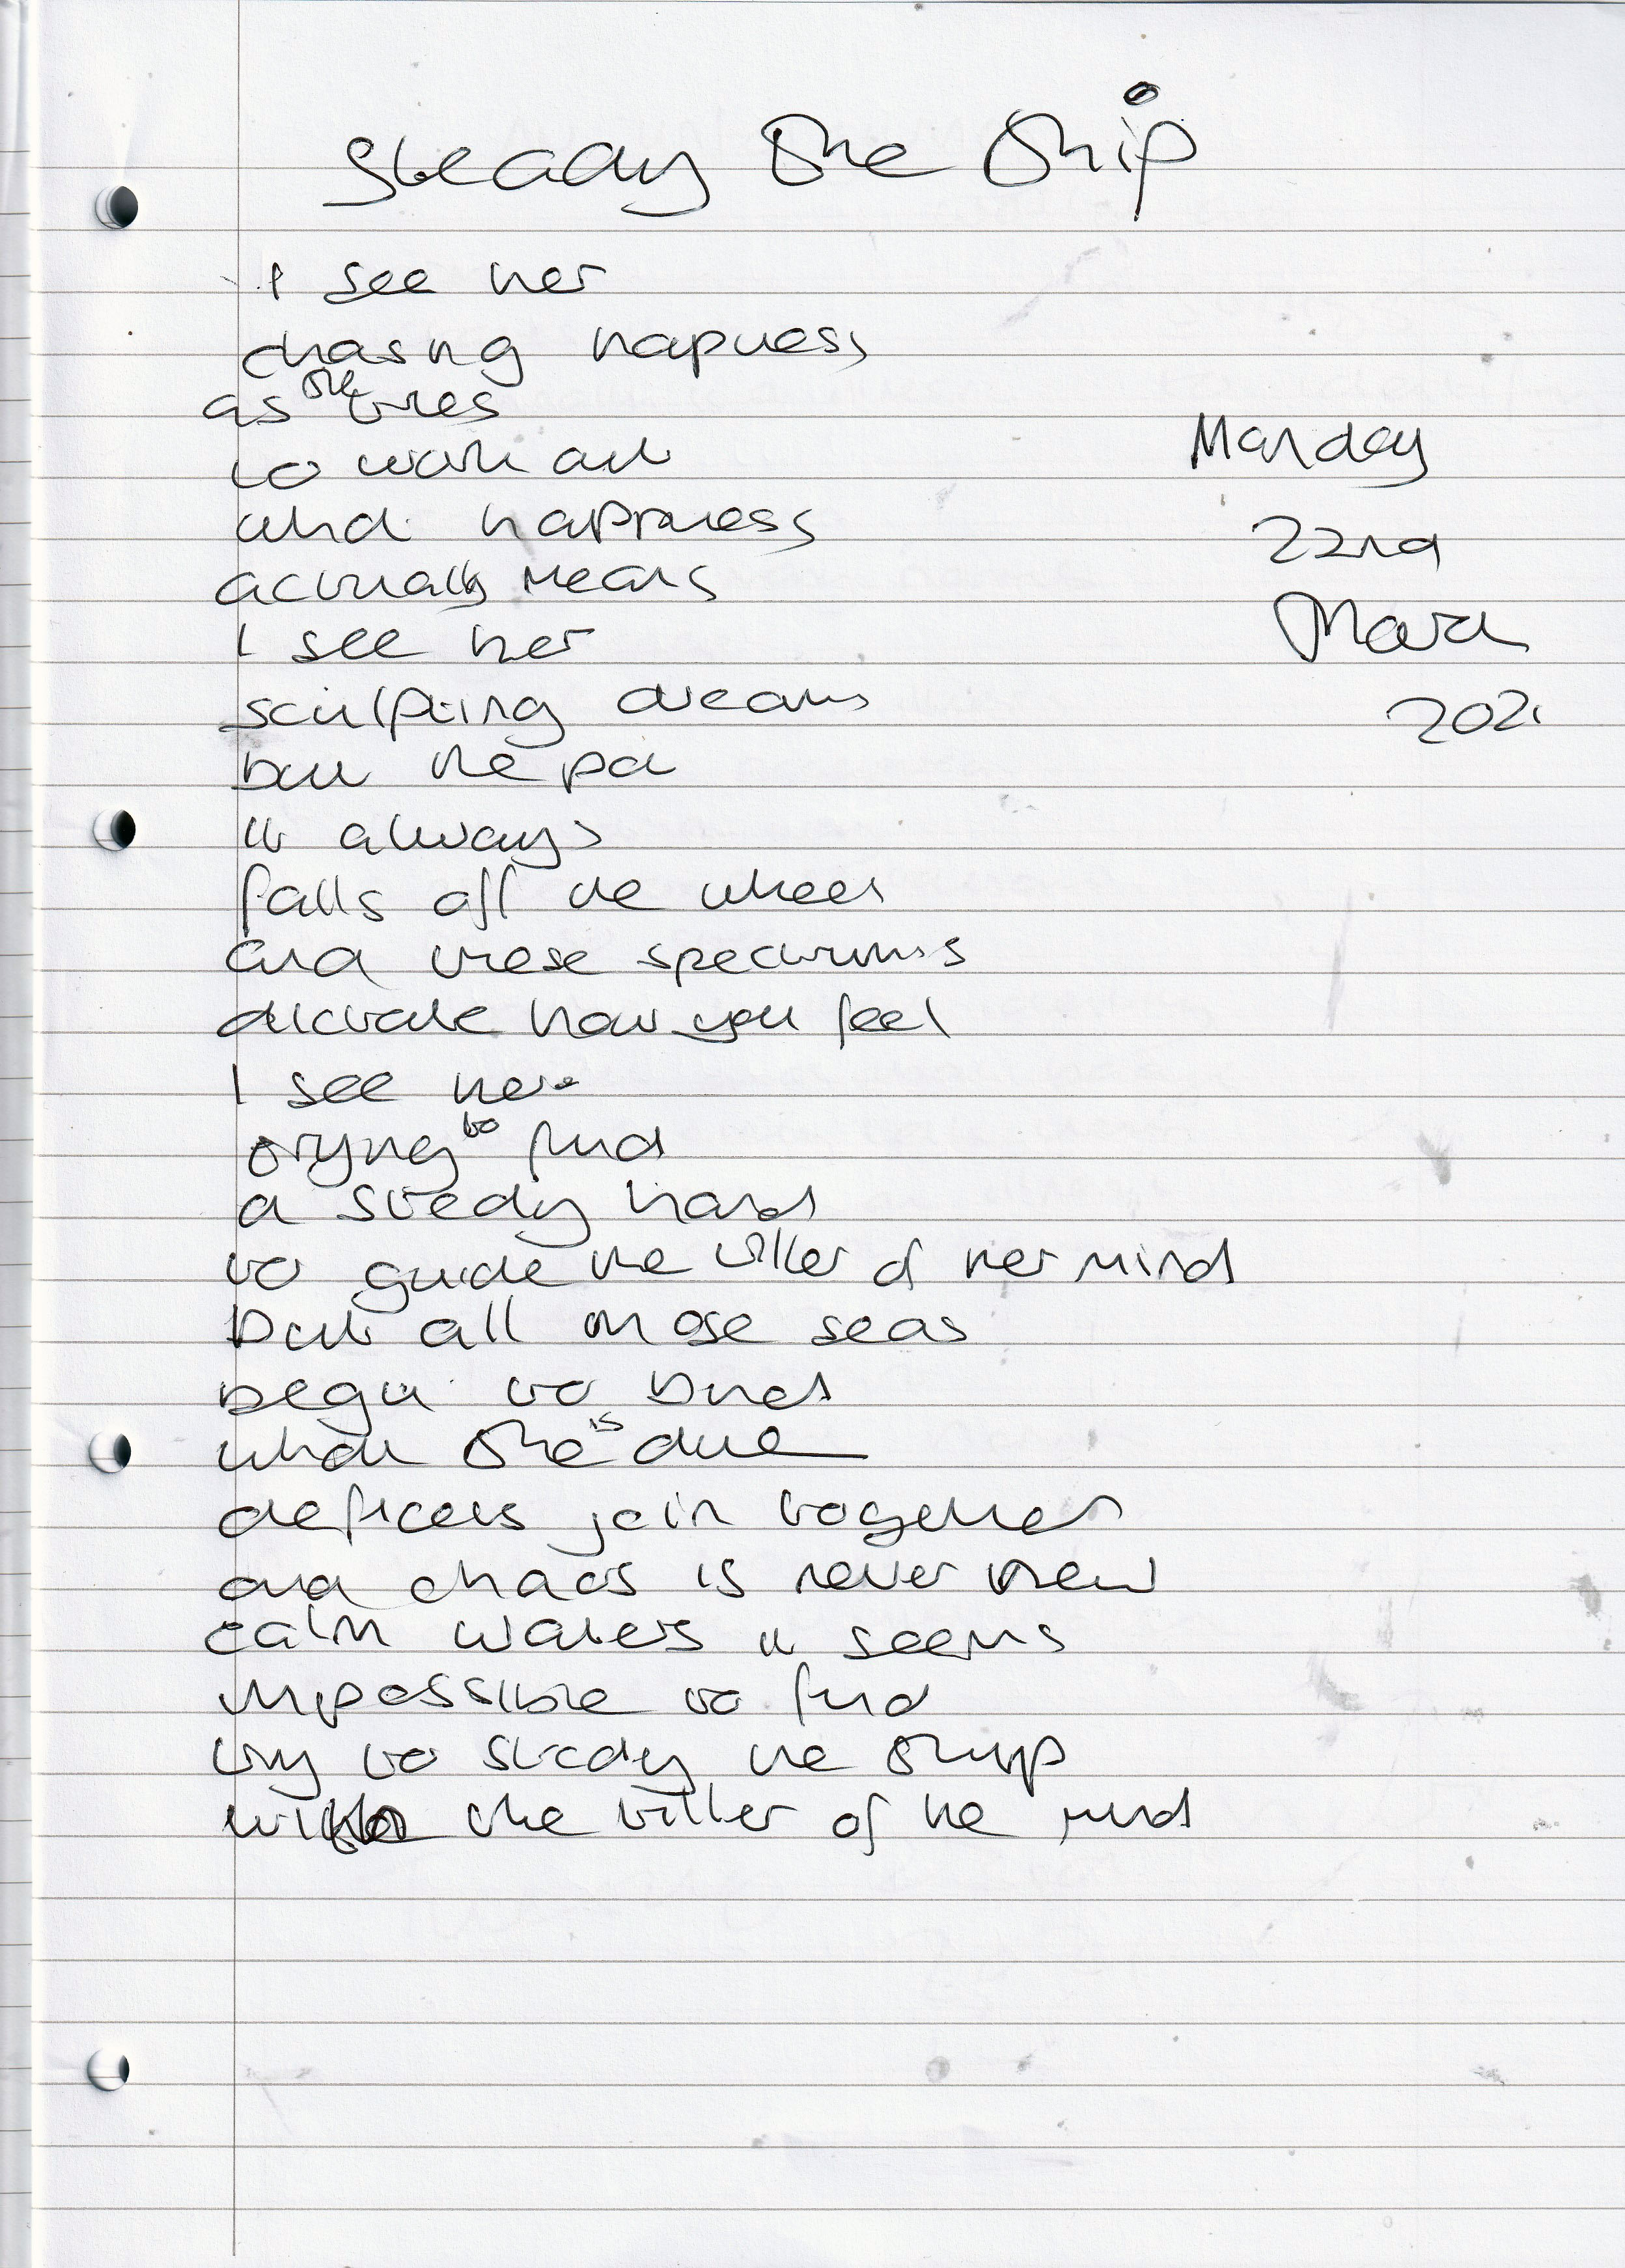 Steady the Ship
I see her
chasing happiness
as she tries
to work out
what happiness
actually means
Monday
22nd
March
2021
I see her
sculpting dreams
but the pot
it always
falls off the wheel
and these spectrums
dictate how you feel
I see her
trying to find
a stedy hand
to guide the tiller of her mind
but all those seas
begin to bind
what she is due
deficits join together
and chaos is never new
calm waters it seems
impossible to find
try to stedy the ship
with the tiller of the mind